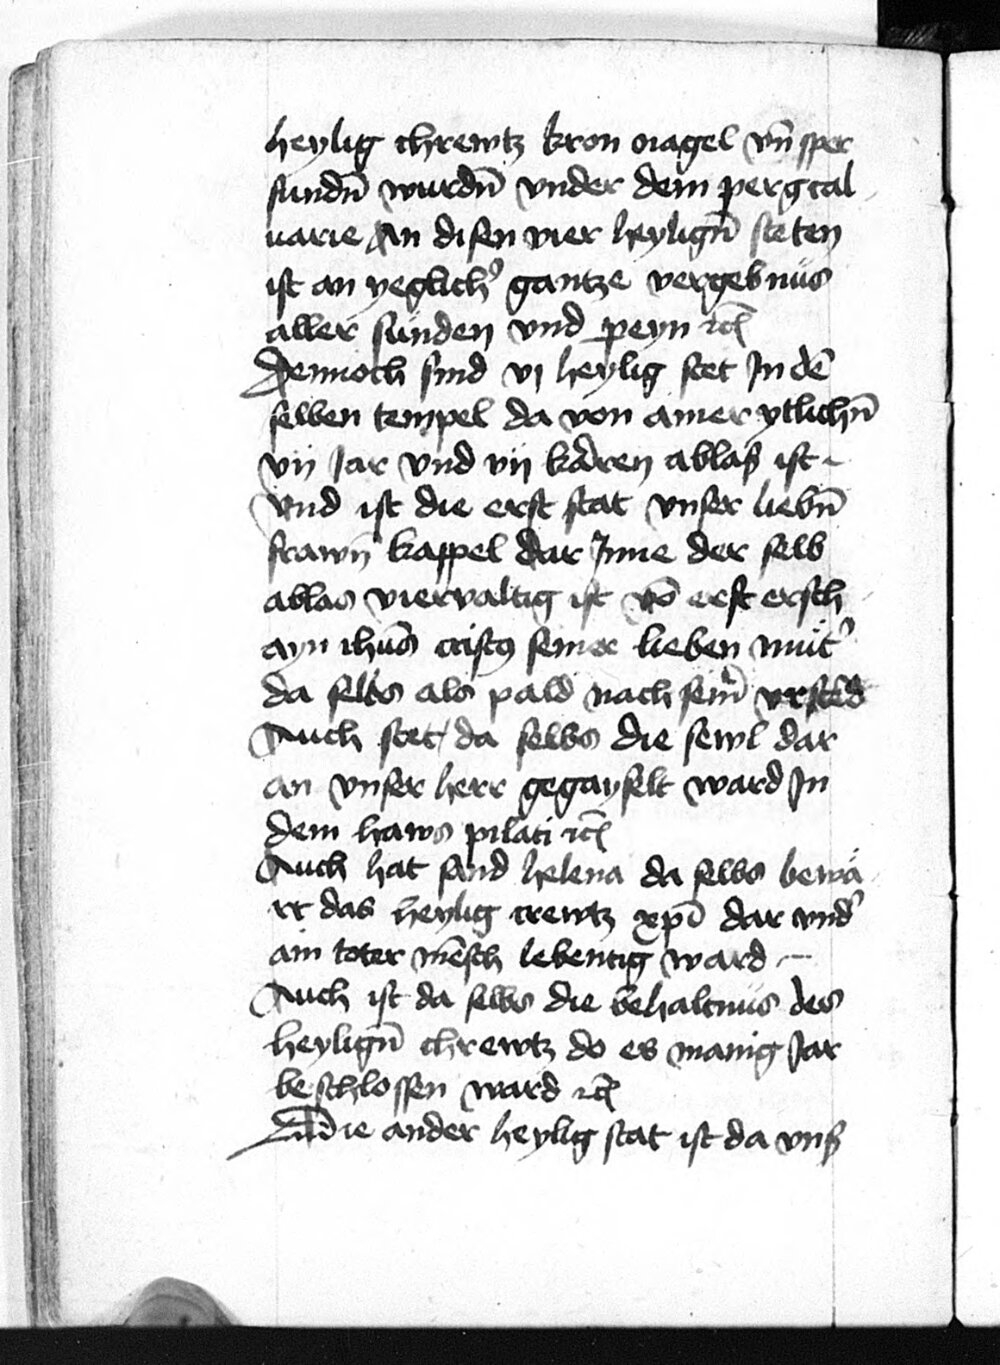 heylig chrewtz kron nagel vn̄ sper
fundn̄ wurdn̄ vnder dem perg cal
uarie An disen vier heylign̄ steten
ist an yeglich' gantze vergebnüs
aller sünden vnd peyn ꝛc̄
Dennoch sind vj heylig stet In dē
selben tempel da von ainer ytlichn̄
vij Jar vnd vij karen ablaß ist
Vnd ist die erst stat vnser liebn̄
frawn̄ kappel dar Inne der selb
ablas viervaltig ist vō erst ersch
ayn ihūs cristꝰ seiner lieben mut'
da selbs als pald nach seinr̄ vrsted
Auch stet da selbs die sewl dar
an vnser herr gegayselt ward In
dem haws pilati ꝛc̄
Auch hat sand helena da selbs bewä
rt das heylig crewtz xpī dar vnd'
ain toter mēsch lebentig ward
Auch ist da selbs die behaltnüs des
heylign̄ chrewtz do es manig Jar
beschlossen ward ꝛc̄
Die ander heylig stat ist da vnß